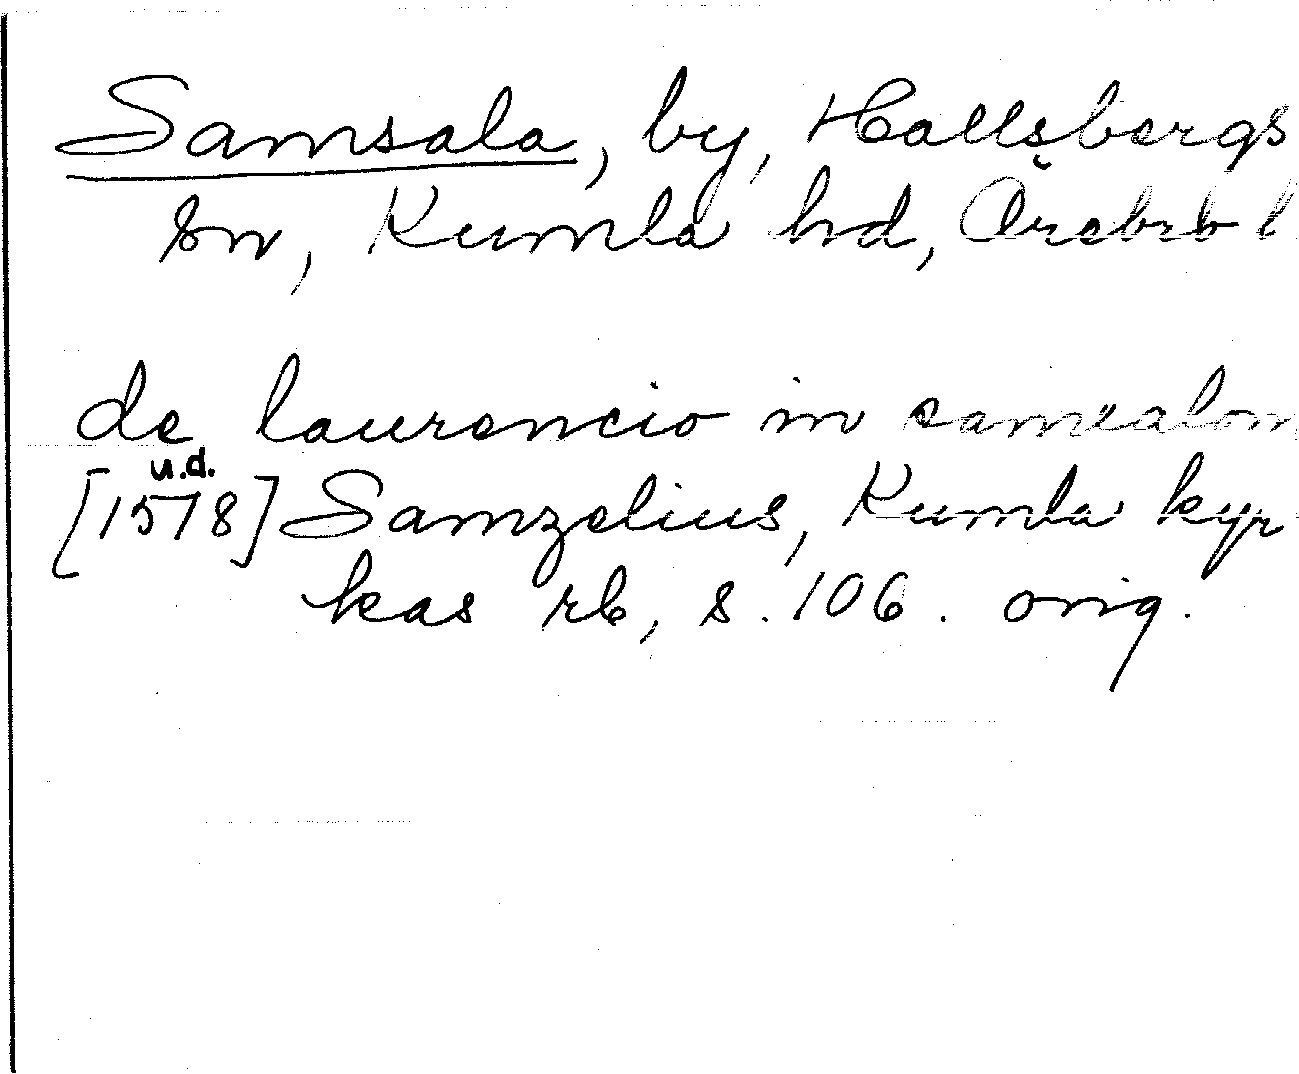 Samsala, by, Hallsbergs
sn, Kumla hd, Örebro l
de laurencio in
u.d.
[1578] Samzelius, Kumla kyr
kas rb, s. 106. orig.